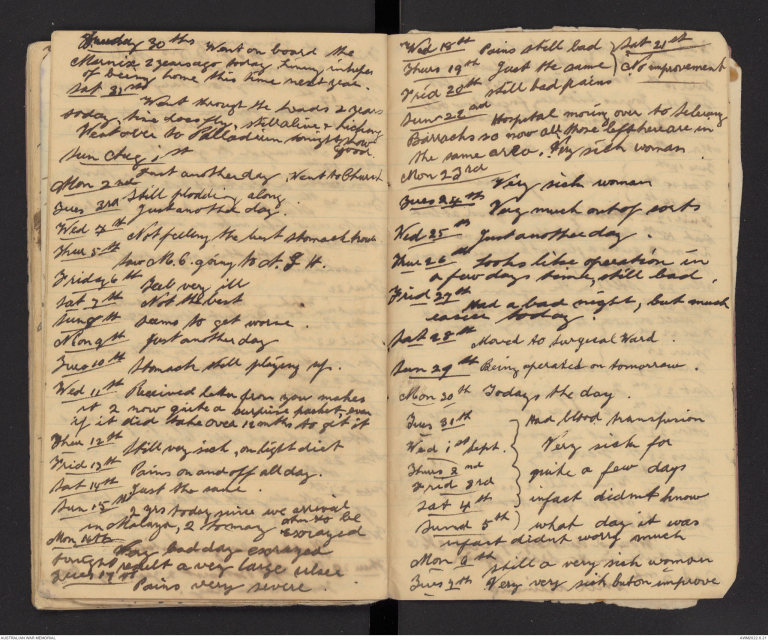 Thursday 30th Went on board the
Marnix 2 years ago today. Living in hopes
of being home this time next year.
Sat 31st
Went through the heads 2 years
today, time does fly, still alive & kicking
Went over to Palladium tonight show
good.
Sun Aug 1st
Just another day, Went to Church
Mon 2nd Still plodding along.
Tues 3rd Just another day.
Wed 4th Not feeling the best stomach trouble
Thur 5th Saw M.O. going to A.G.H.
Friday 6th Feel very ill
Sat 7th Not the best
Sun 8th Seems to get worse.
Mon 9th Just another day
Tues 10th Stomach still playing up.
Wed 11th Received letter from you makes
it 2 now quite a surprise packet, even
if it did take over 12 mths to get it
Thur 12th Still very sick, on light diet
Frid 13th Pains on and off all day.
Sat 14th Just the same.
Sun 15th 2 yrs today since we arrived
in Malaya, 2 to many am to be
exrayed
Mon 16th Very bad day exrayed
tonight result a very large ulser
Tues 17th Pains very severe.
Wed 18th Pains still bad
Thurs 19th Just the same
Frid 20th still bad pains
Sat 21st
No improvement
Sun 22nd
Hospital moving over to Selerang
Barrachs so now all those left here are in
the same area. Very sick woman
Mon 23rd
Very sick woman
Tues 24th Very much out of sorts
Wed 25th Just another day.
Thur 26th Looks like operation in
a few days time, still bad.
Frid 27th Had a bad night, but much
easier today.
Sat 28th Moved to Surgical Ward.
Sun 29th Being operated on tomorrow.
Mon 30th Todays the day.
Tues 31st Had blood transfusion
Wed 1st Sept. Very sick for
Thurs 2nd quite a few days
Frid 3rd infact didnt know
Sat 4th what day it was
Sund 5th infact didnt worry much
Mon 6th still a very sick woman
Tues 7th Very very sick but on improve
AUSTRALIAN WAR MEMORIAL
AWM2022.6.21